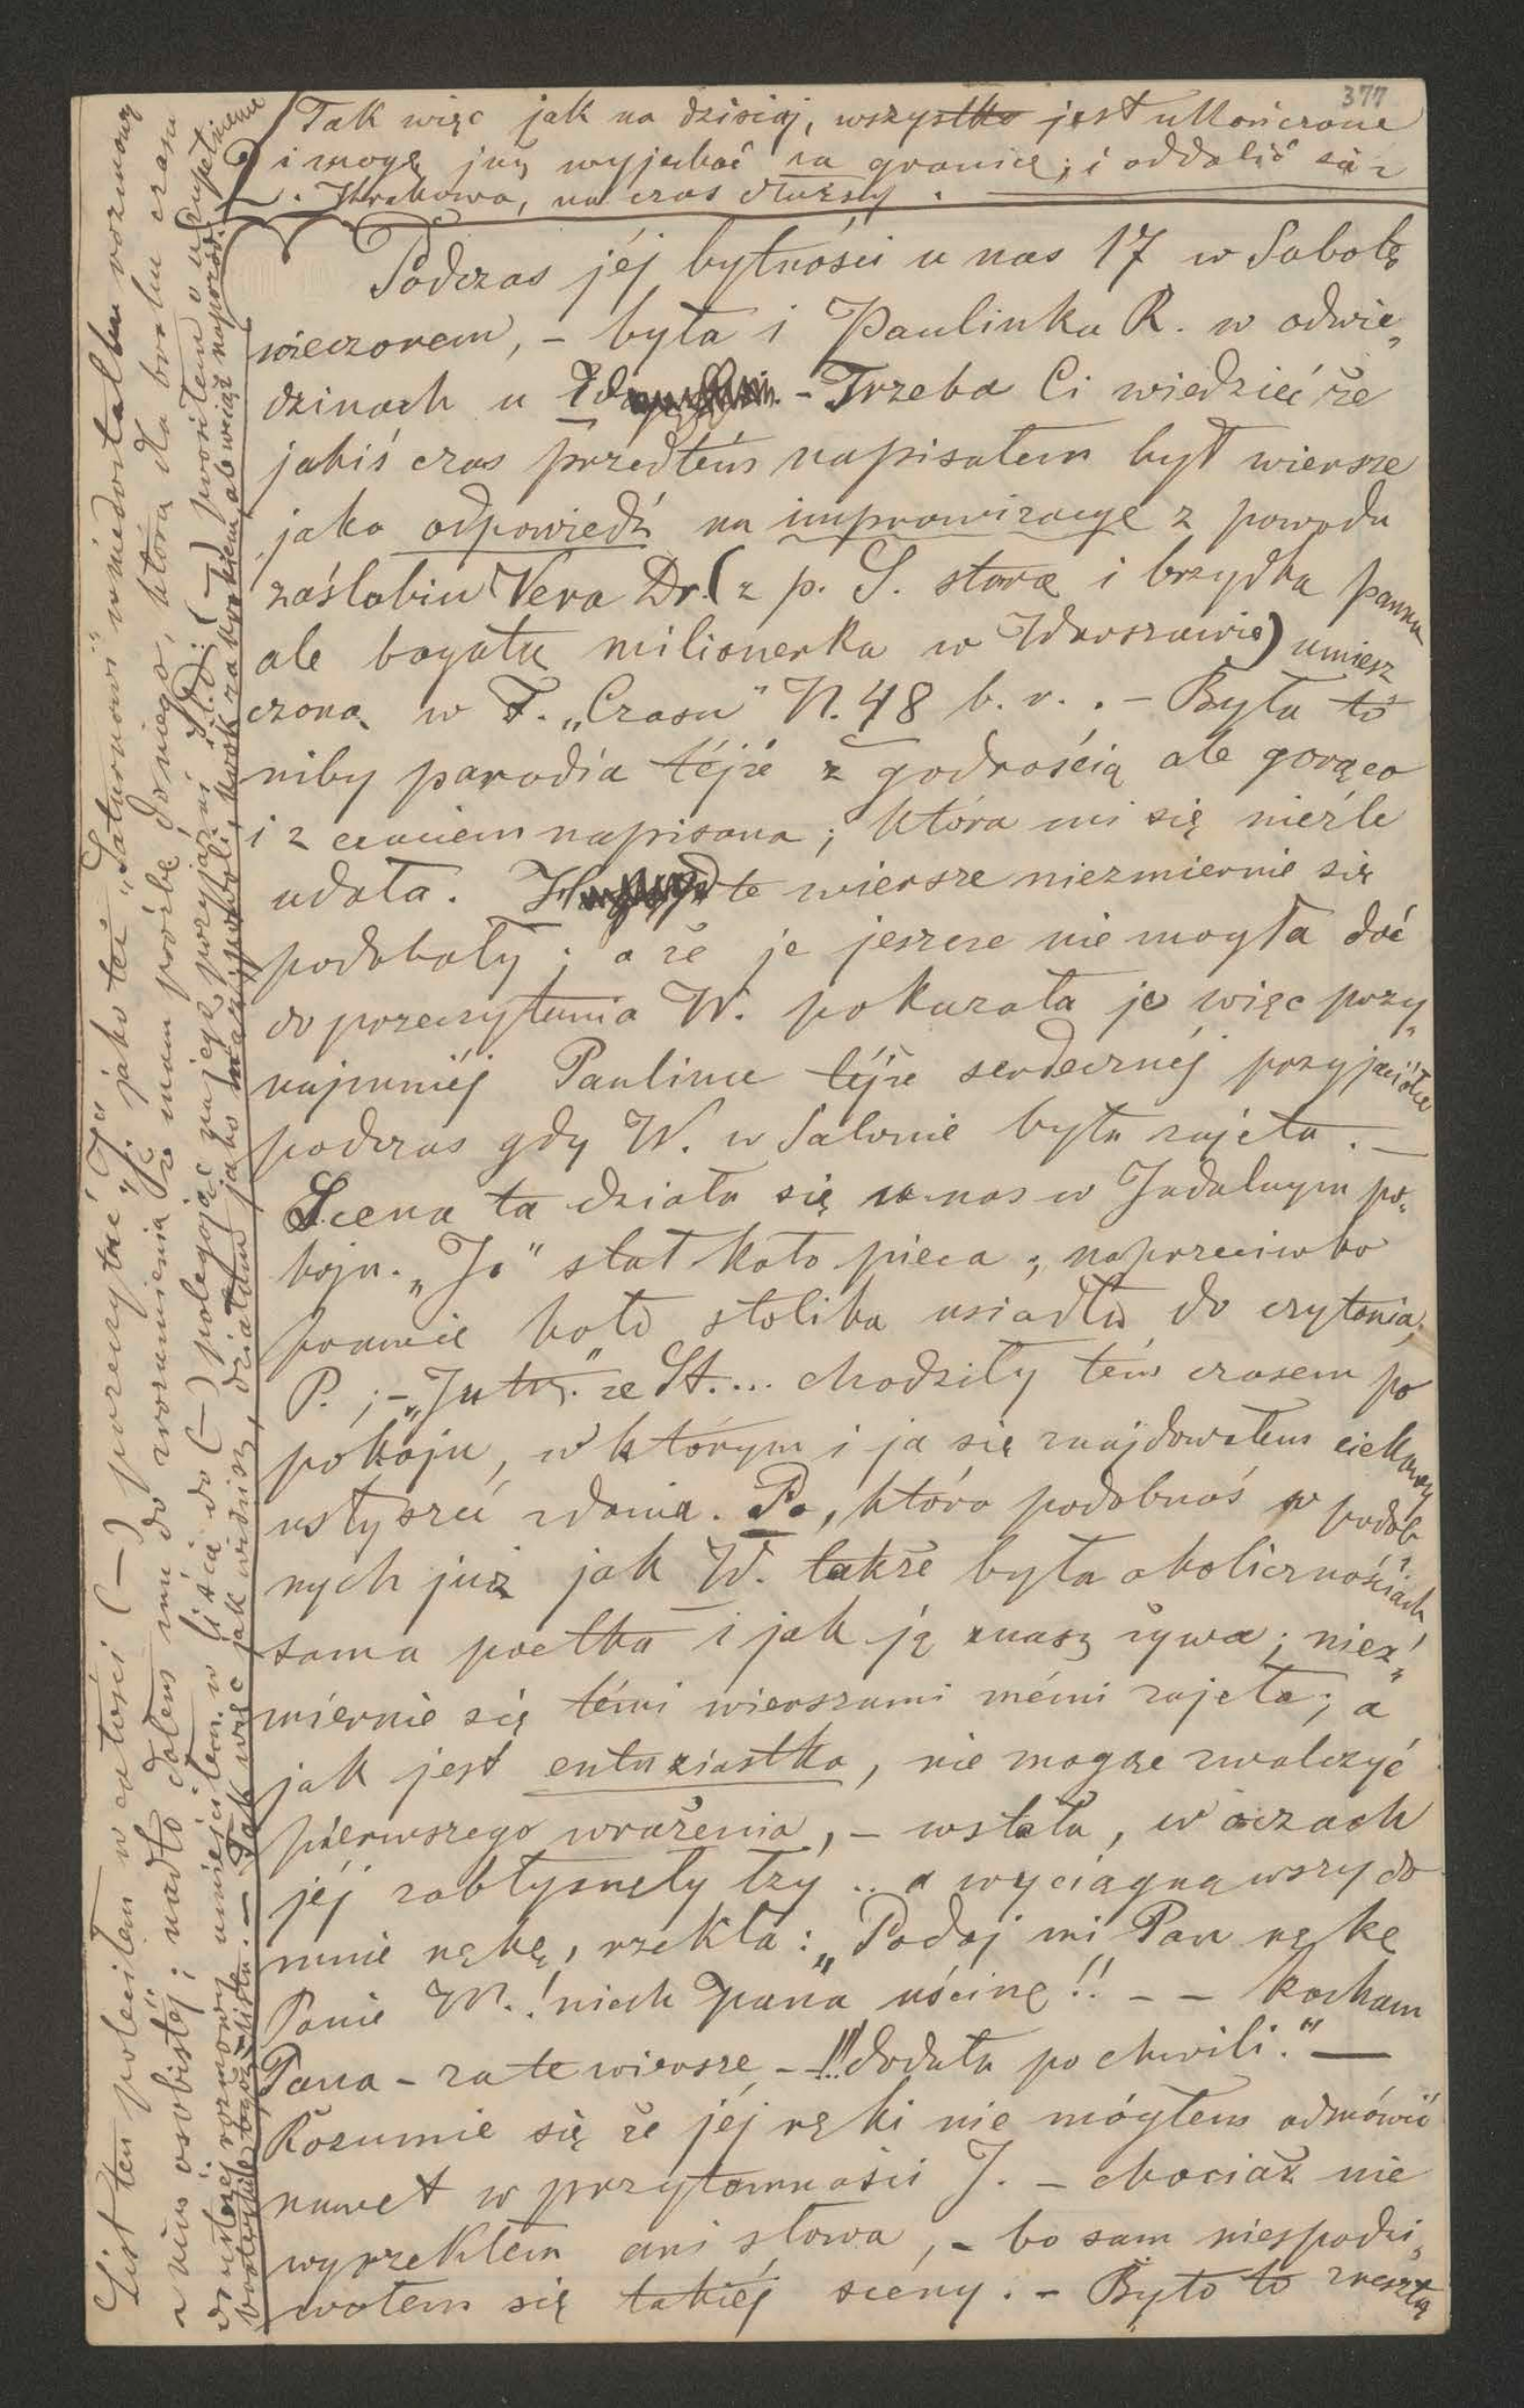 377
Tak więc jak na dzisiaj, wszystko jest ukończone
i mogę już wyjechać za granicę; i oddalić się z
Krakowa, na czas dłuższy.
Podczas jéj bytności u nas 17 w Sobotę
wieczorem, – była i Paulinka R. w odwie„
dzinach u – Trzeba Ci wiedzieć że
jakiś czas przedtém napisałem był wiersze
jako odpowiedź na improwizacye z powodu
zaślubin Vera Dr. (z p. S. stara i brzydka panna
ale bogata milionerka w Warszawie) umiesz
czoną w F. „Czasu" N. 48 b. r. . – Była to
niby parodia téjże z godnością ale gorąco
i z czuciem napisana; która mi się nieźle
udała. te wiersze niezmiernie się
podobały; a że je jeszcze nie mogła dać
do przeczytania W. pokazała je więc przy„
najmniéj Paulinie téjże serdecznéj przyjaciółce
podczas gdy W. w Salonie była zajęta. –
Scena ta działa się u nas w Jadalnym po„
koju. „Ja" stał koło pieca; naprzeciwko
prawie koło stolika usiadła do czytania
P. ; – ze St.... chodziły tém czasem po
pokoju, w którym i ja się znajdowałem ciekawy
usłyszeć zdania. Pa, która podobnoś w podob
nych już jak W. także była okolicznościach,
sama poetka i jak ją znasz żywa; niez„
miernie się témi wierszami mémi zajęła; a
jak jest entuziastka, nie mogąc zwalczyć
pierwszego wrażenia, – wstała, w oczach
jéj zabłysnęły łzy .. a wyciągnąwszy do
mnie rękę, rzekła: „Podaj mi Pan rękę
Panie M.! niech pana uścisnę!! – – kocham
Pana – za te wiersze – !!! dodała po chwili." —
Rozumie się że jéj ręki nie mógłem odmówić
nawet w przytomności J. – chociaż nie
wyrzekłem ani słowa, – bo sam niespodzi„
wałem się takiéj scény. – Było to zresztą
List ten poleciłem w całości (–) przeczytać „J." jako też „Saturnowi" wiadomość o rozmowy
z nim osobistéj; nadto dałem mu do zrozumienia że mam prośbę do niego, którą dla braku czasu
do ustnéj rozmowy umieściłem w liście do (–) polegając na jego przyjaźni
– Tak więc jak widzisz, działam jako malej powoli, krok za krokiem, ale wciąż naprzód.